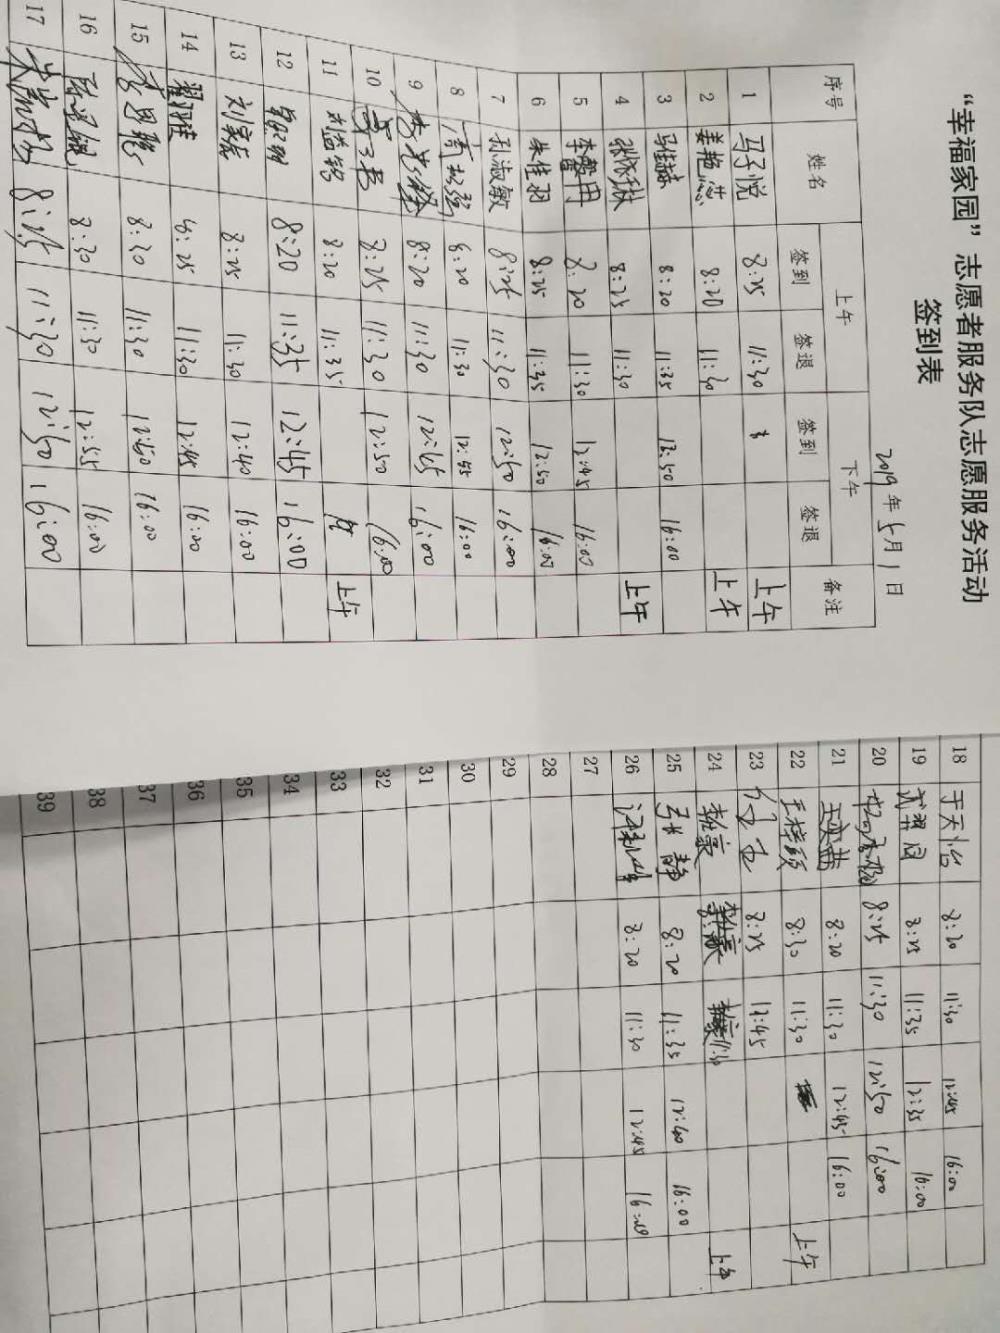 “幸福家园”志愿者服务队志愿服务活动
签到表
2019年5月1日
序号 姓名 上午 下午 备注
签到 签退 签到 签退
1 马子悦 8:25 11:30 上午
2 姜艳芯 8:20 11:30 上午
3 马佳赫 8:20 11:35 12:50 16:00
4 8:25 11:30 上午
5 李馨丹 8:20 11:30 12:45 16:00
6 朱佳羽 8:25 11:35 12:50 16:00
7 孙淑敏 8:25 11:30 12:50 16:00
8 8:20 11:30 12:45 16:00
9 8:20 11:30 12:45 16:00
10 8:25 11:30 12:50 16:00
11 刘益铭 8:20 11:35 上午
12 8:20 11:35 12:45 16:00
13 8:25 11:30 12:40 16:00
14 翟雅 8:25 11:30 12:45 16:00
15 8:30 11:30 12:50 16:00
16 8:30 11:30 12:55 16:00
17 8:25 11:30 12:50 16:00
18 于天怡 8:20 11:30 12:45 16:00
19 8:25 11:35 12:35 16:00
20 8:25 11:30 12:50 16:00
21 8:20 11:30 12:45 16:00
22 8:30 11:30 上午
23 8:25 12:45
24 11:30 上午
25 张静 8:20 11:35 12:40 16:00
26 8:20 11:30 12:45 16:00
27
28
29
30
31
32
33
34
35
36
37
38
39